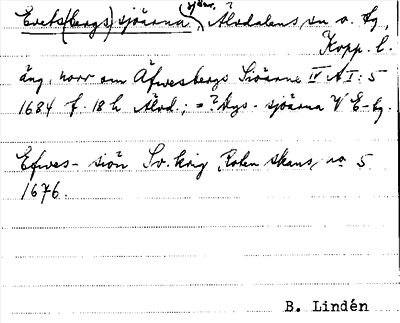 Evets(bergs)sjöarna, Älvdalens sn o. tg,
sjöar.
Kopp. l.
äng, norr om Äfwesbergs Siöarne IV A I: 5
1684 f. 18 h Älvd.; = ? Dys- sjöarna V E- tg.
Efwes- siön Sv. krig Roten skans, no 5
1676.
B. Lindén